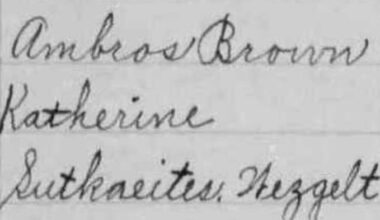 Ambros Brown
Katherine
Sutkaeites. Nezgelt